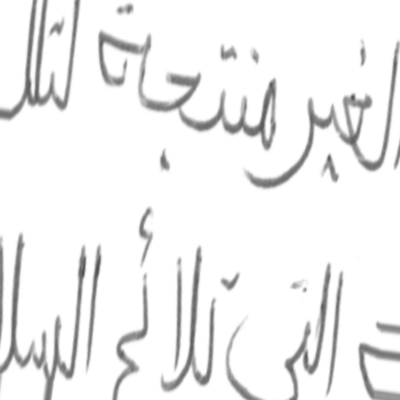 الغير منتجة لتلك
التى تلائم السلا